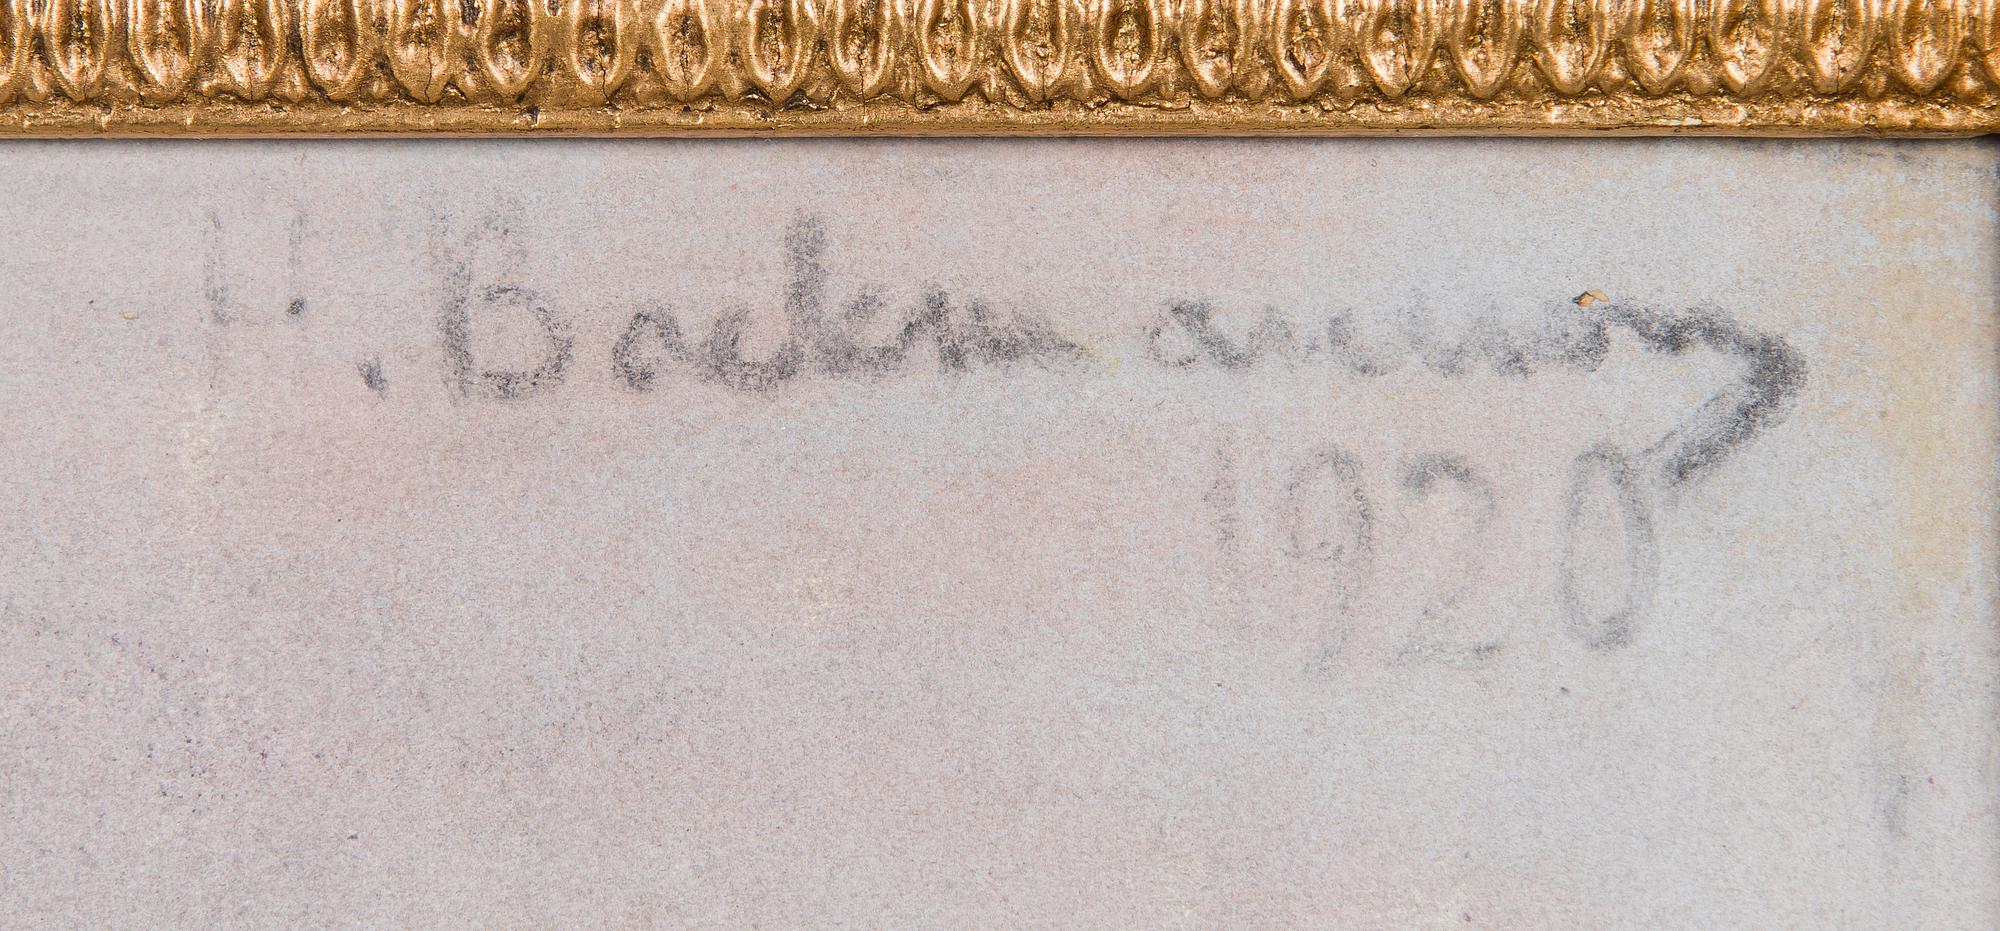 H. Backmansson
1920